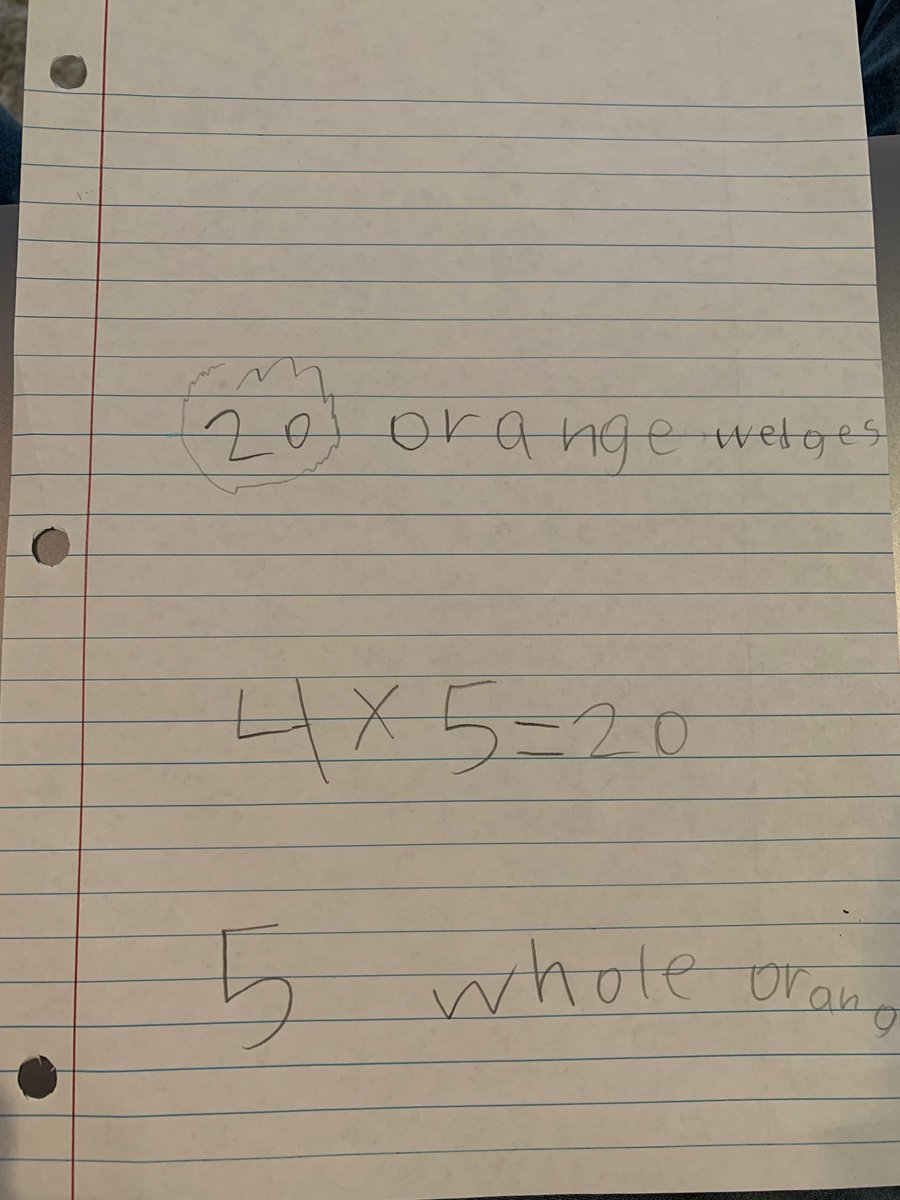 20 orange wedges
4 x 5 = 20
5 whole orang